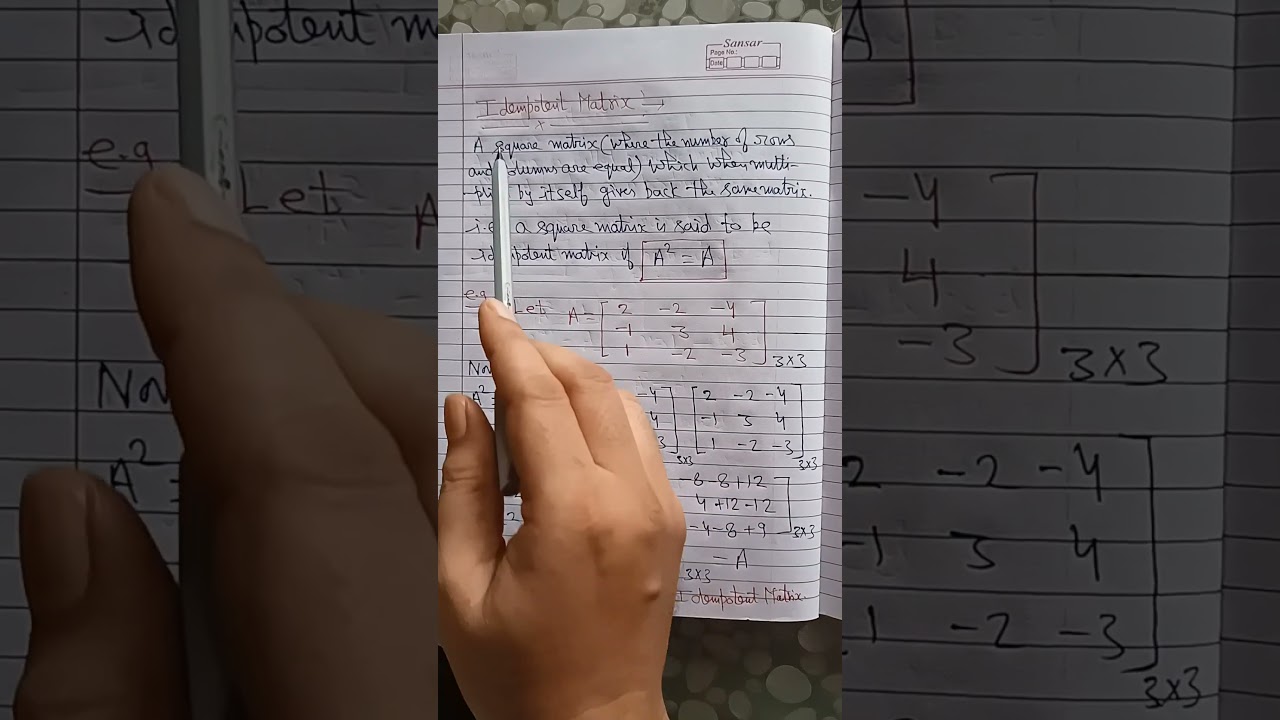 Sansar
Page No.:
Date
Idempotent Matrix :→
A square matrix (where the number of rows
and columns are equal) which when multi-
by itself gives back the same matrix.
i.e. a square matrix is said to be
Idempotent matrix if A² = A
e.g Let A = [ 2 -2 -4
-1 3 4
1 -2 -3 ] 3×3
A² -4 [ 2 -2 -4
4 -1 3 4
3 ] 3×3 1 -2 -3 ] 3×3
-8-8+12
4+12-12
-4-8+9 ] 3×3
3×3 = A
Idempotent Matrix.